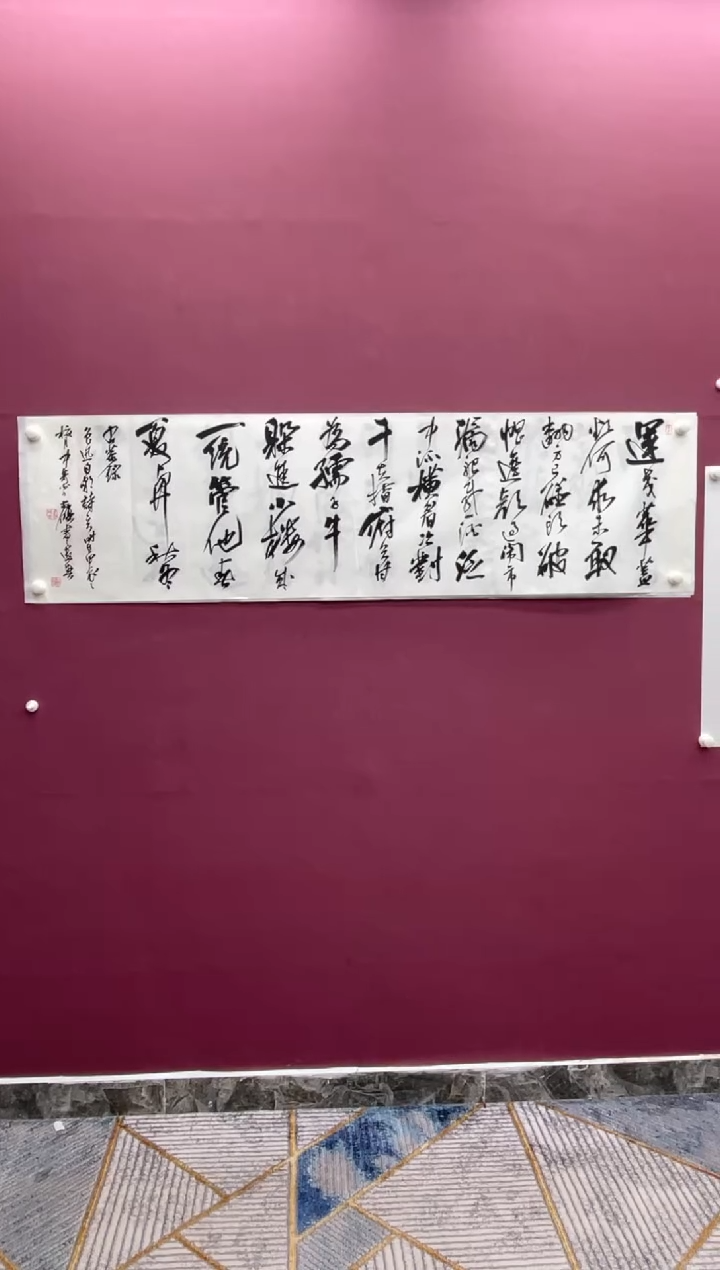 運交華蓋
欲何求未敢
翻身已碰頭破
帽遮顏過鬧市
漏船載酒泛
中流橫眉冷對
千夫指俯首甘
為孺子牛
躲進小樓成
一統管他冬
夏與春秋
魯迅自嘲詩